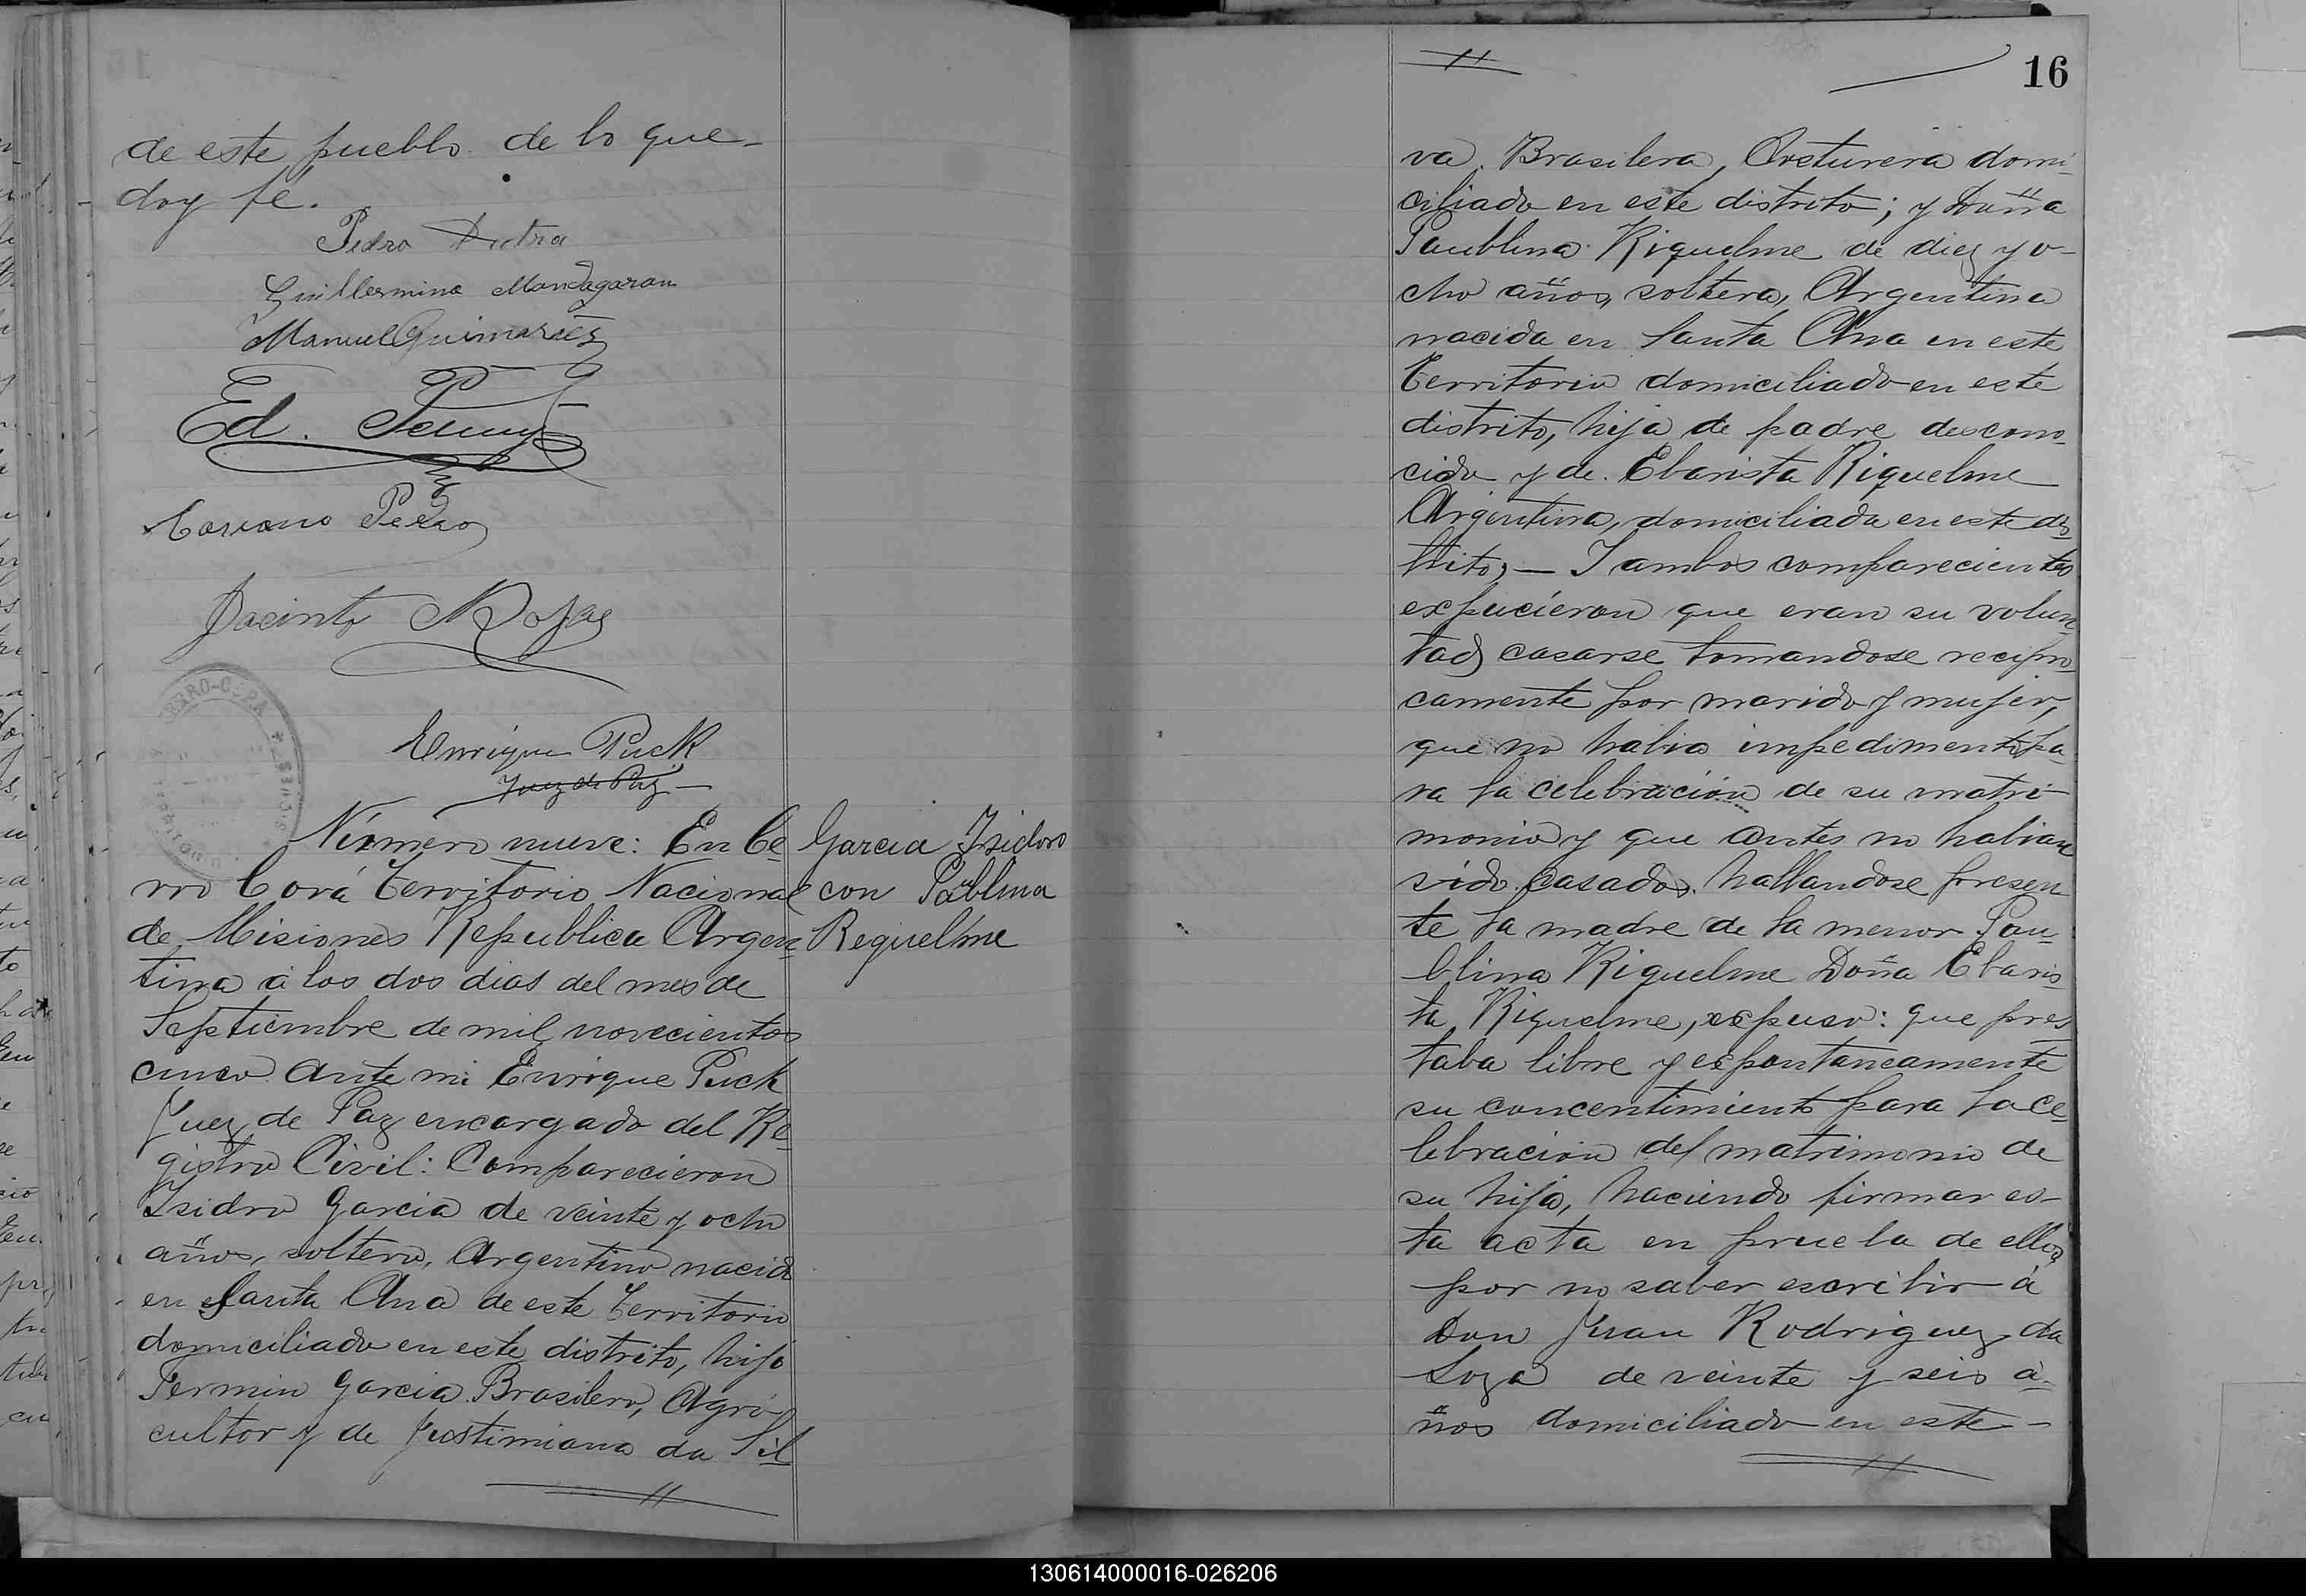 de este pueblo de lo que
doy fé.
Pedro
Guillermina Mondagaran
Manuel Guimarães
Ed.
Mariano
Jacinto Rojas
CERRO-CORÁ
Enrique Puck
Juez de Paz
Número nueve: En Ce-
rro Corá Territorio Nacional
de Misiones Republica Argen-
tina á los dos dias del mes de
Septiembre de mil novecientos
cinco ante mi Enrique Puck
Juez de Paz encargado del Re-
gistro Civil: Comparecieron
Isidro Garcia de veinte y ocho
años, soltero, Argentino nacido
en Santa Ana de este Territorio
domiciliado en este distrito, hijo
Fermin Garcia Brasilero, Agri-
cultor y de Justimiana da Sil
Garcia Isidoro
con Paublina
Requelme
16
va, Brasilera, Costurera domi-
ciliado en este distrito; y Doña
Paublina Riquelme de diez y o-
cho años, soltera, Argentina
nacida en Santa Ana en este
Territorio domiciliado en este
distrito, hija de padre descono-
cido y de Ebarista Riquelme
Argentina, domiciliada en este dis-
trito, — I ambos comparecientes
expucieron que eran su volun-
tad casarse tomandose recipro-
camente por marido y mujer,
que no habia impedimento pa-
ra la celebración de su matri-
monio y que antes no habian
sido casados. hallandose presen-
te la madre de la menor Pau-
blina Riquelme Doña Ebaris-
ta Riquelme, expuso: que pres-
taba libre y espontaneamente
su concentimiento para la ce-
lebracion del matrimonio de
su hija, haciendo firmar es-
ta acta en prueba de ello,
por no saber escribir á
Don Juan Rodriguez da
Loza de veinte y seis a-
ños domiciliado en este
130614000016-026206